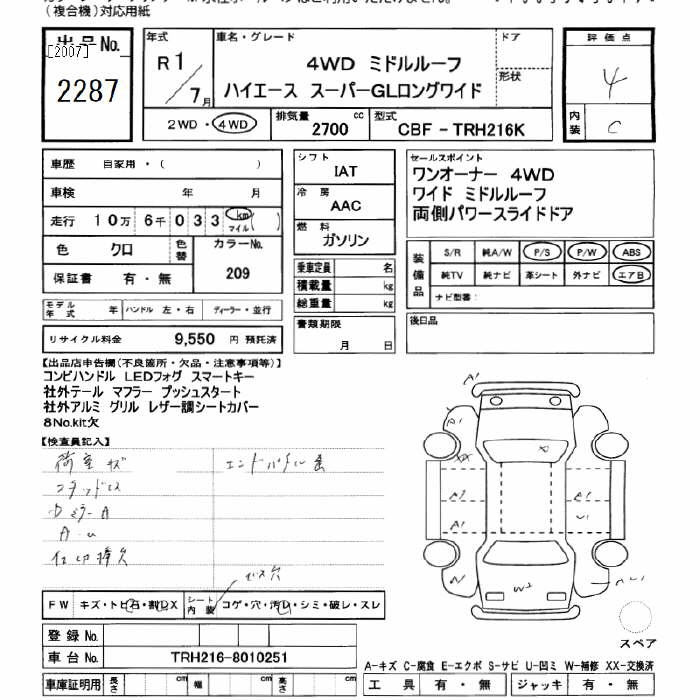 (複合機)対応用紙
出品No.
[2007]
2287
年式
R1/7月
車名・グレード
4WD ミドルルーフ
ハイエース スーパーGLロングワイド
ドア
形状
2WD・4WD
排気量
2700 cc
型式
CBF - TRH216K
評価点
4
内装
C
車歴 自家用・( )
車検 年 月
走行 10万 6千 033 km マイル( )
色 クロ 色替
カラーNo.
209
保証書 有・無
モデル年式 年 ハンドル 左・右 ディーラー・並行
リサイクル料金 9,550 円 預託済
シフト
IAT
冷房
AAC
燃料
ガソリン
乗車定員 名
積載量 kg
総重量 kg
書類期限
月 日
セールスポイント
ワンオーナー 4WD
ワイド ミドルルーフ
両側パワースライドドア
装備品
S/R 純A/W P/S P/W ABS
純TV 純ナビ 革シート 外ナビ エアB
ナビ型番:
後日品
【出品店申告欄(不良箇所・欠品・注意事項等)】
コンビハンドル LEDフォグ スマートキー
社外テール マフラー プッシュスタート
社外アルミ グリル レザー調シートカバー
8No.kit欠
【検査員記入】
荷室キズ
FW キズ・トビ石・割レX
シート内装 コゲ・穴・汚レ・シミ・破レ・スレ
登録No.
車台No. TRH216-8010251
車庫証明用 長さ cm 幅 cm 高さ cm
A1
A
XX
A1
A1
A1
W2
スペア
A-キズ C-腐食 E-エクボ S-サビ U-凹ミ W-補修 XX-交換済
工具 有・無 ジャッキ 有・無